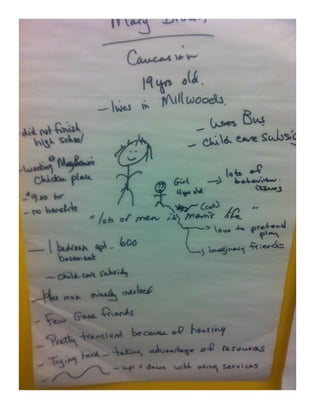 Mary
Caucasian
19 yrs old.
- lives in Millwoods.
- uses Bus
- child care subsidy
- did not finish
high school
- working @
Chicken place
- $9.00 hr
- no benefits
Girl
4 yr old
→ lots of
behaviour
issues
(cat)
"lots of men in mom's life"
→ love to pretend
play
→ imaginary friends
- 1 bedroom apt. 600
basement
- child care subsidy
- Her mom minorly involved
- Few Good friends
- Pretty transient because of housing
- Trying hard - taking advantage of resources
- up + down with using services